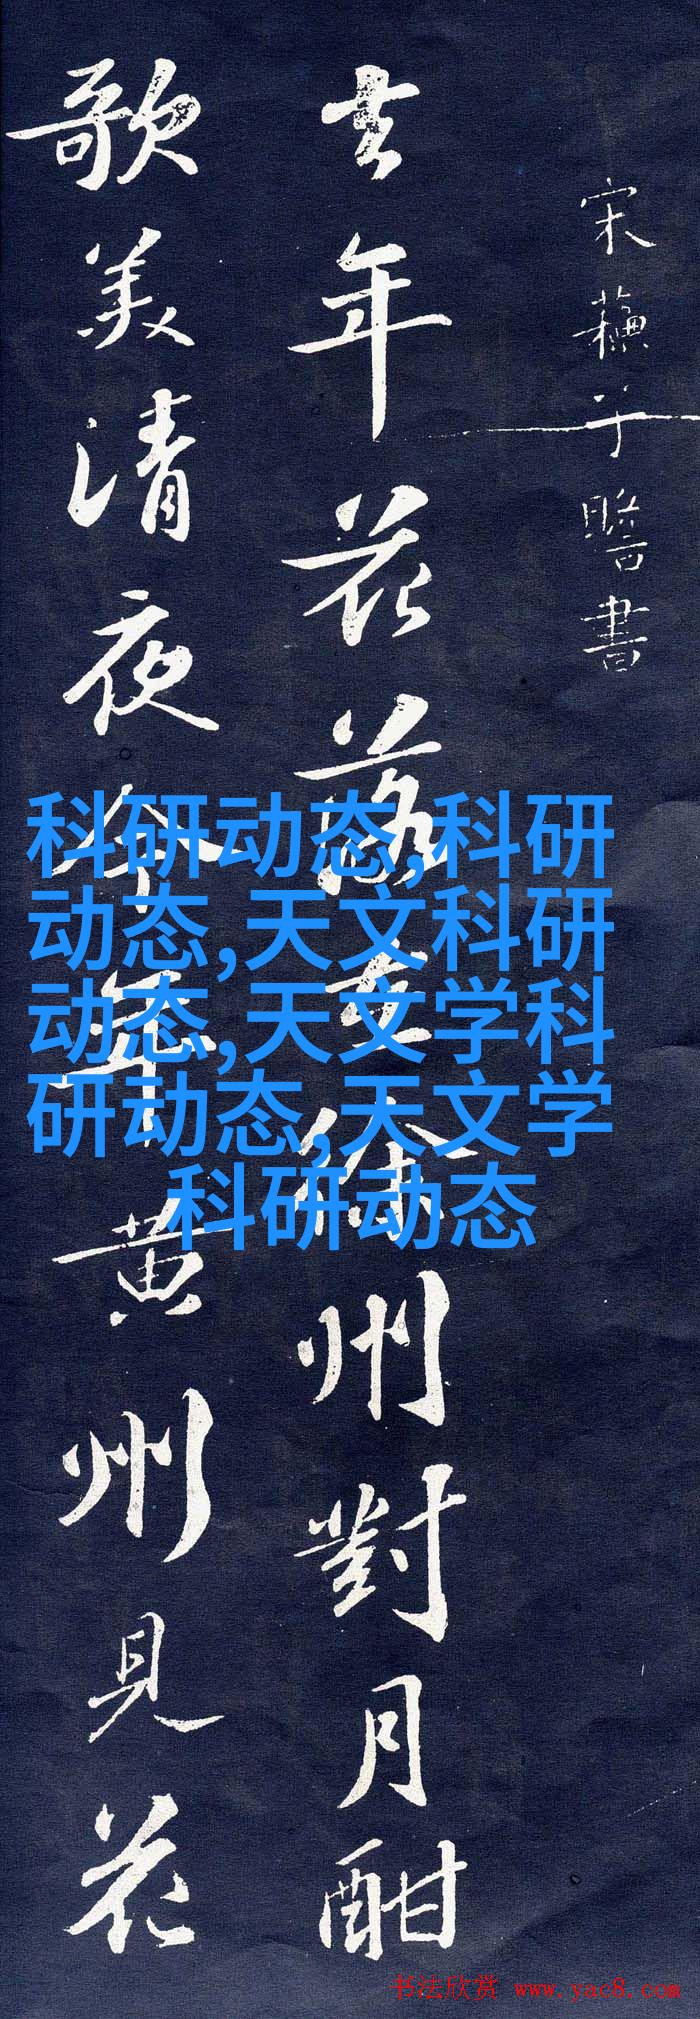 宋蘓子瞻書
去年花落在徐州對月酣
歌美清夜今年黄州見花
科研动态,科研
动态,天文科研
动态,天文学科
研动态,天文学
科研动态
书法欣赏 www.yac8.com